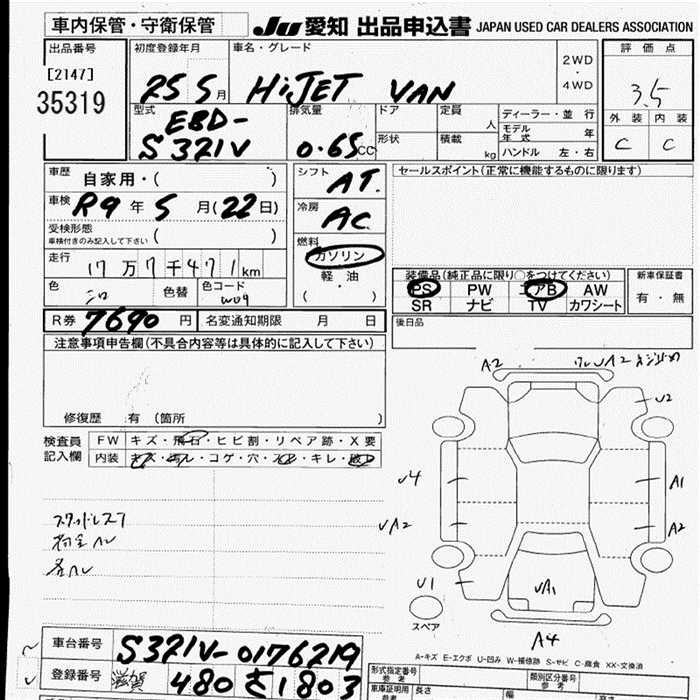 車内保管・守衛保管
JU 愛知 出品申込書 JAPAN USED CAR DEALERS ASSOCIATION
出品番号
[2147]
35319
初度登録年月
25 5 月
車名・グレード
HiJET VAN
2WD
・
4WD
評価点
3.5
外装 内装
C C
型式
EBD-
S321V
排気量
0.65 CC
ドア
形状
定員 人
積載 kg
ディーラー・並行
モデル年式 年
ハンドル 左・右
車歴
自家用・( )
車検 R9 年 5 月 (22 日)
受検形態
車検付きのみ記入して下さい ( )
走行
17 万 7 千 4 7 1 km
色 シロ 色替 色コード W09
シフト AT.
冷房 AC
燃料
ガソリン
軽・油
( ・ )
セールスポイント(正常に機能するものに限ります)
装備品(純正品に限り○をつけてください)
PS PW エアB AW
SR ナビ TV カワシート
新車保証書
有・無
後日品
R券 7690 円 名変通知期限 月 日
注意事項申告欄(不具合内容等は具体的に記入して下さい)
修復歴 有 (箇所 )
検査員
記入欄
FW キズ・飛石・ヒビ割・リペア跡・X要
内装 キズ・ヨゴレ・コゲ・穴・スレ・キレ・
スタッドレス
A2
U2
A1
A2
A4
U1
スペア
A-キズ E-エクボ U-凹み W-補修跡 S-サビ C-腐食 XX-交換済
車台番号 S321V-0176219
登録番号 滋賀 480 さ 1803
形式指定番号
参考
類別区分番号
参考
車庫証明用
長さ
幅
高さ